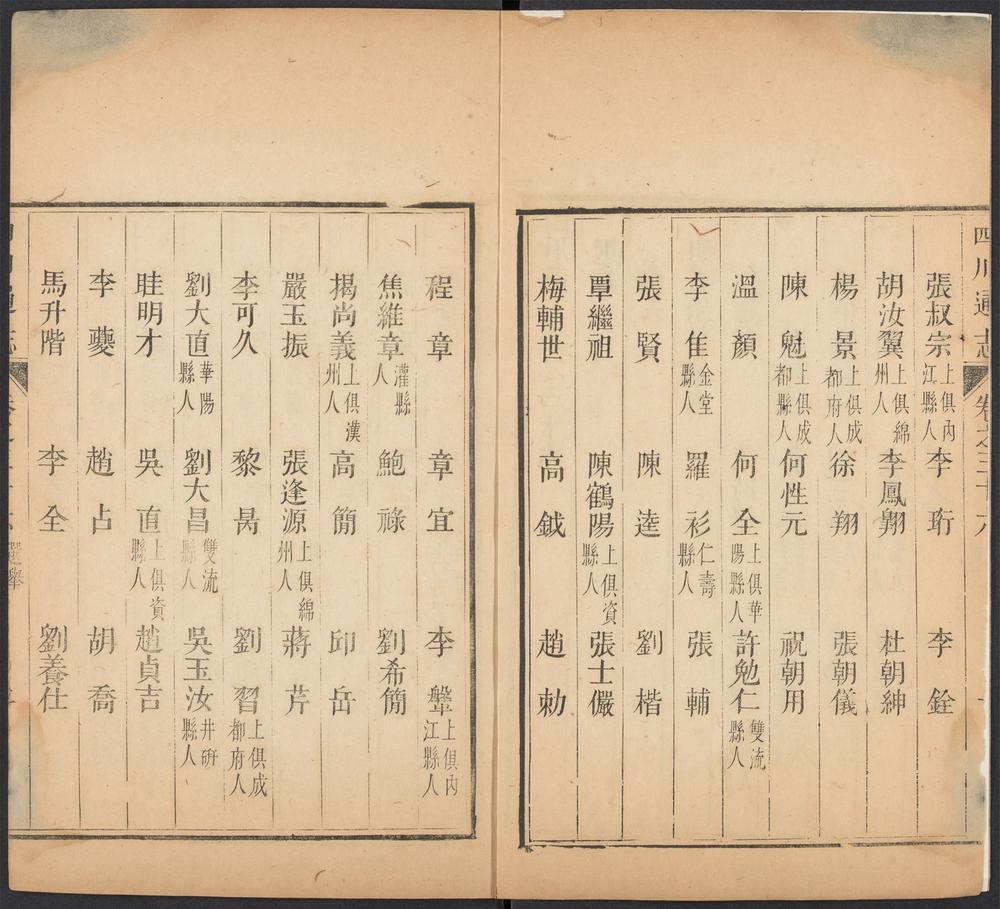 四川通志 卷之三十六
張叔宗上俱內江縣人 李珩 李銓
胡汝翼上俱綿州人 李鳳翔 杜朝紳
楊景上俱成都府人 徐翔 張朝儀
陳魁上俱成都縣人 何性元 祝朝用
溫顏 何全上俱華陽縣人 許勉仁雙流縣人
李隹金堂縣人 羅衫仁壽縣人 張輔
張賢 陳逵 劉楷
覃繼祖 陳鶴陽上俱資縣人 張士儼
梅輔世 高鉞 趙勅
程章 章宜 李鞶上俱內江縣人
焦維章灌縣人 鮑祿 劉希簡
揭尚義上俱漢州人 高簡 邱岳
嚴玉振 張逢源上俱綿州人 蔣芹
李可久 黎咼 劉習上俱成都府人
劉大直華陽縣人 劉大昌雙流縣人 吳玉汝井研縣人
眭明才 吳直上俱資縣人 趙貞吉
李夔 趙占 胡喬
馬升階 李全 劉養仕
選舉